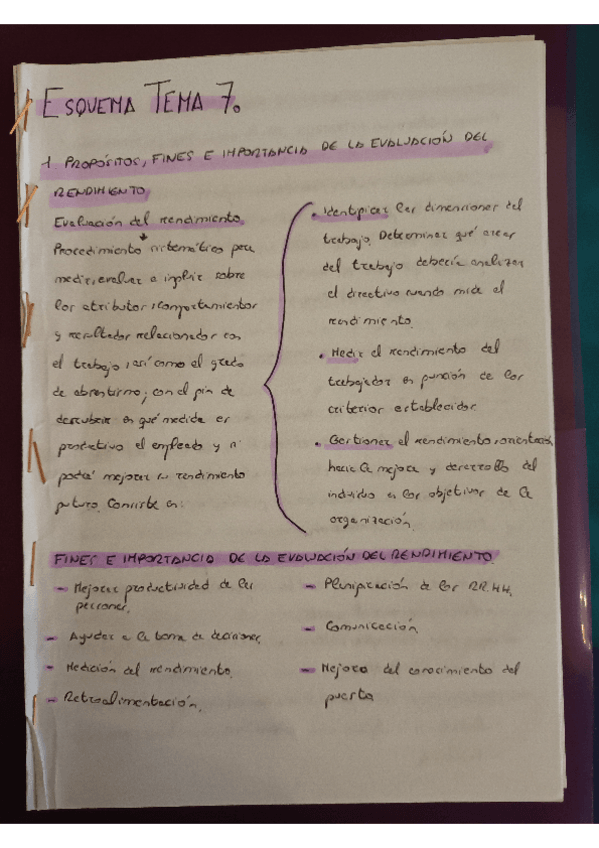 ESQUEMA TEMA 7.
1. PROPÓSITOS, FINES E IMPORTANCIA DE LA EVALUACIÓN DEL
RENDIMIENTO
Evaluación del rendimiento
Procedimiento sistemático para
medir, evaluar e influir sobre
los atributos, comportamientos
y resultados relacionados con
el trabajo, así como el grado
de absentismo, con el fin de
descubrir en qué medida es
productivo el empleado y si
podrá mejorar su rendimiento
futuro. Consiste en:
• Identificar las dimensiones del
trabajo. Determinar qué areas
del trabajo debería analizar
el directivo cuando mide el
rendimiento.
• Medir el rendimiento del
trabajador en función de los
criterios establecidos
• Gestionar el rendimiento, orientada
hacia la mejora y desarrollo del
individuo en los objetivos de la
organización.
FINES E IMPORTANCIA DE LA EVALUACIÓN DEL RENDIMIENTO
- Mejorar productividad de las
personas.
- Ayudar a la toma de decisiones.
- Medición del rendimiento.
- Retroalimentación.
- Planificación de los RR.HH.
- Comunicación
- Mejora del conocimiento del
puesto